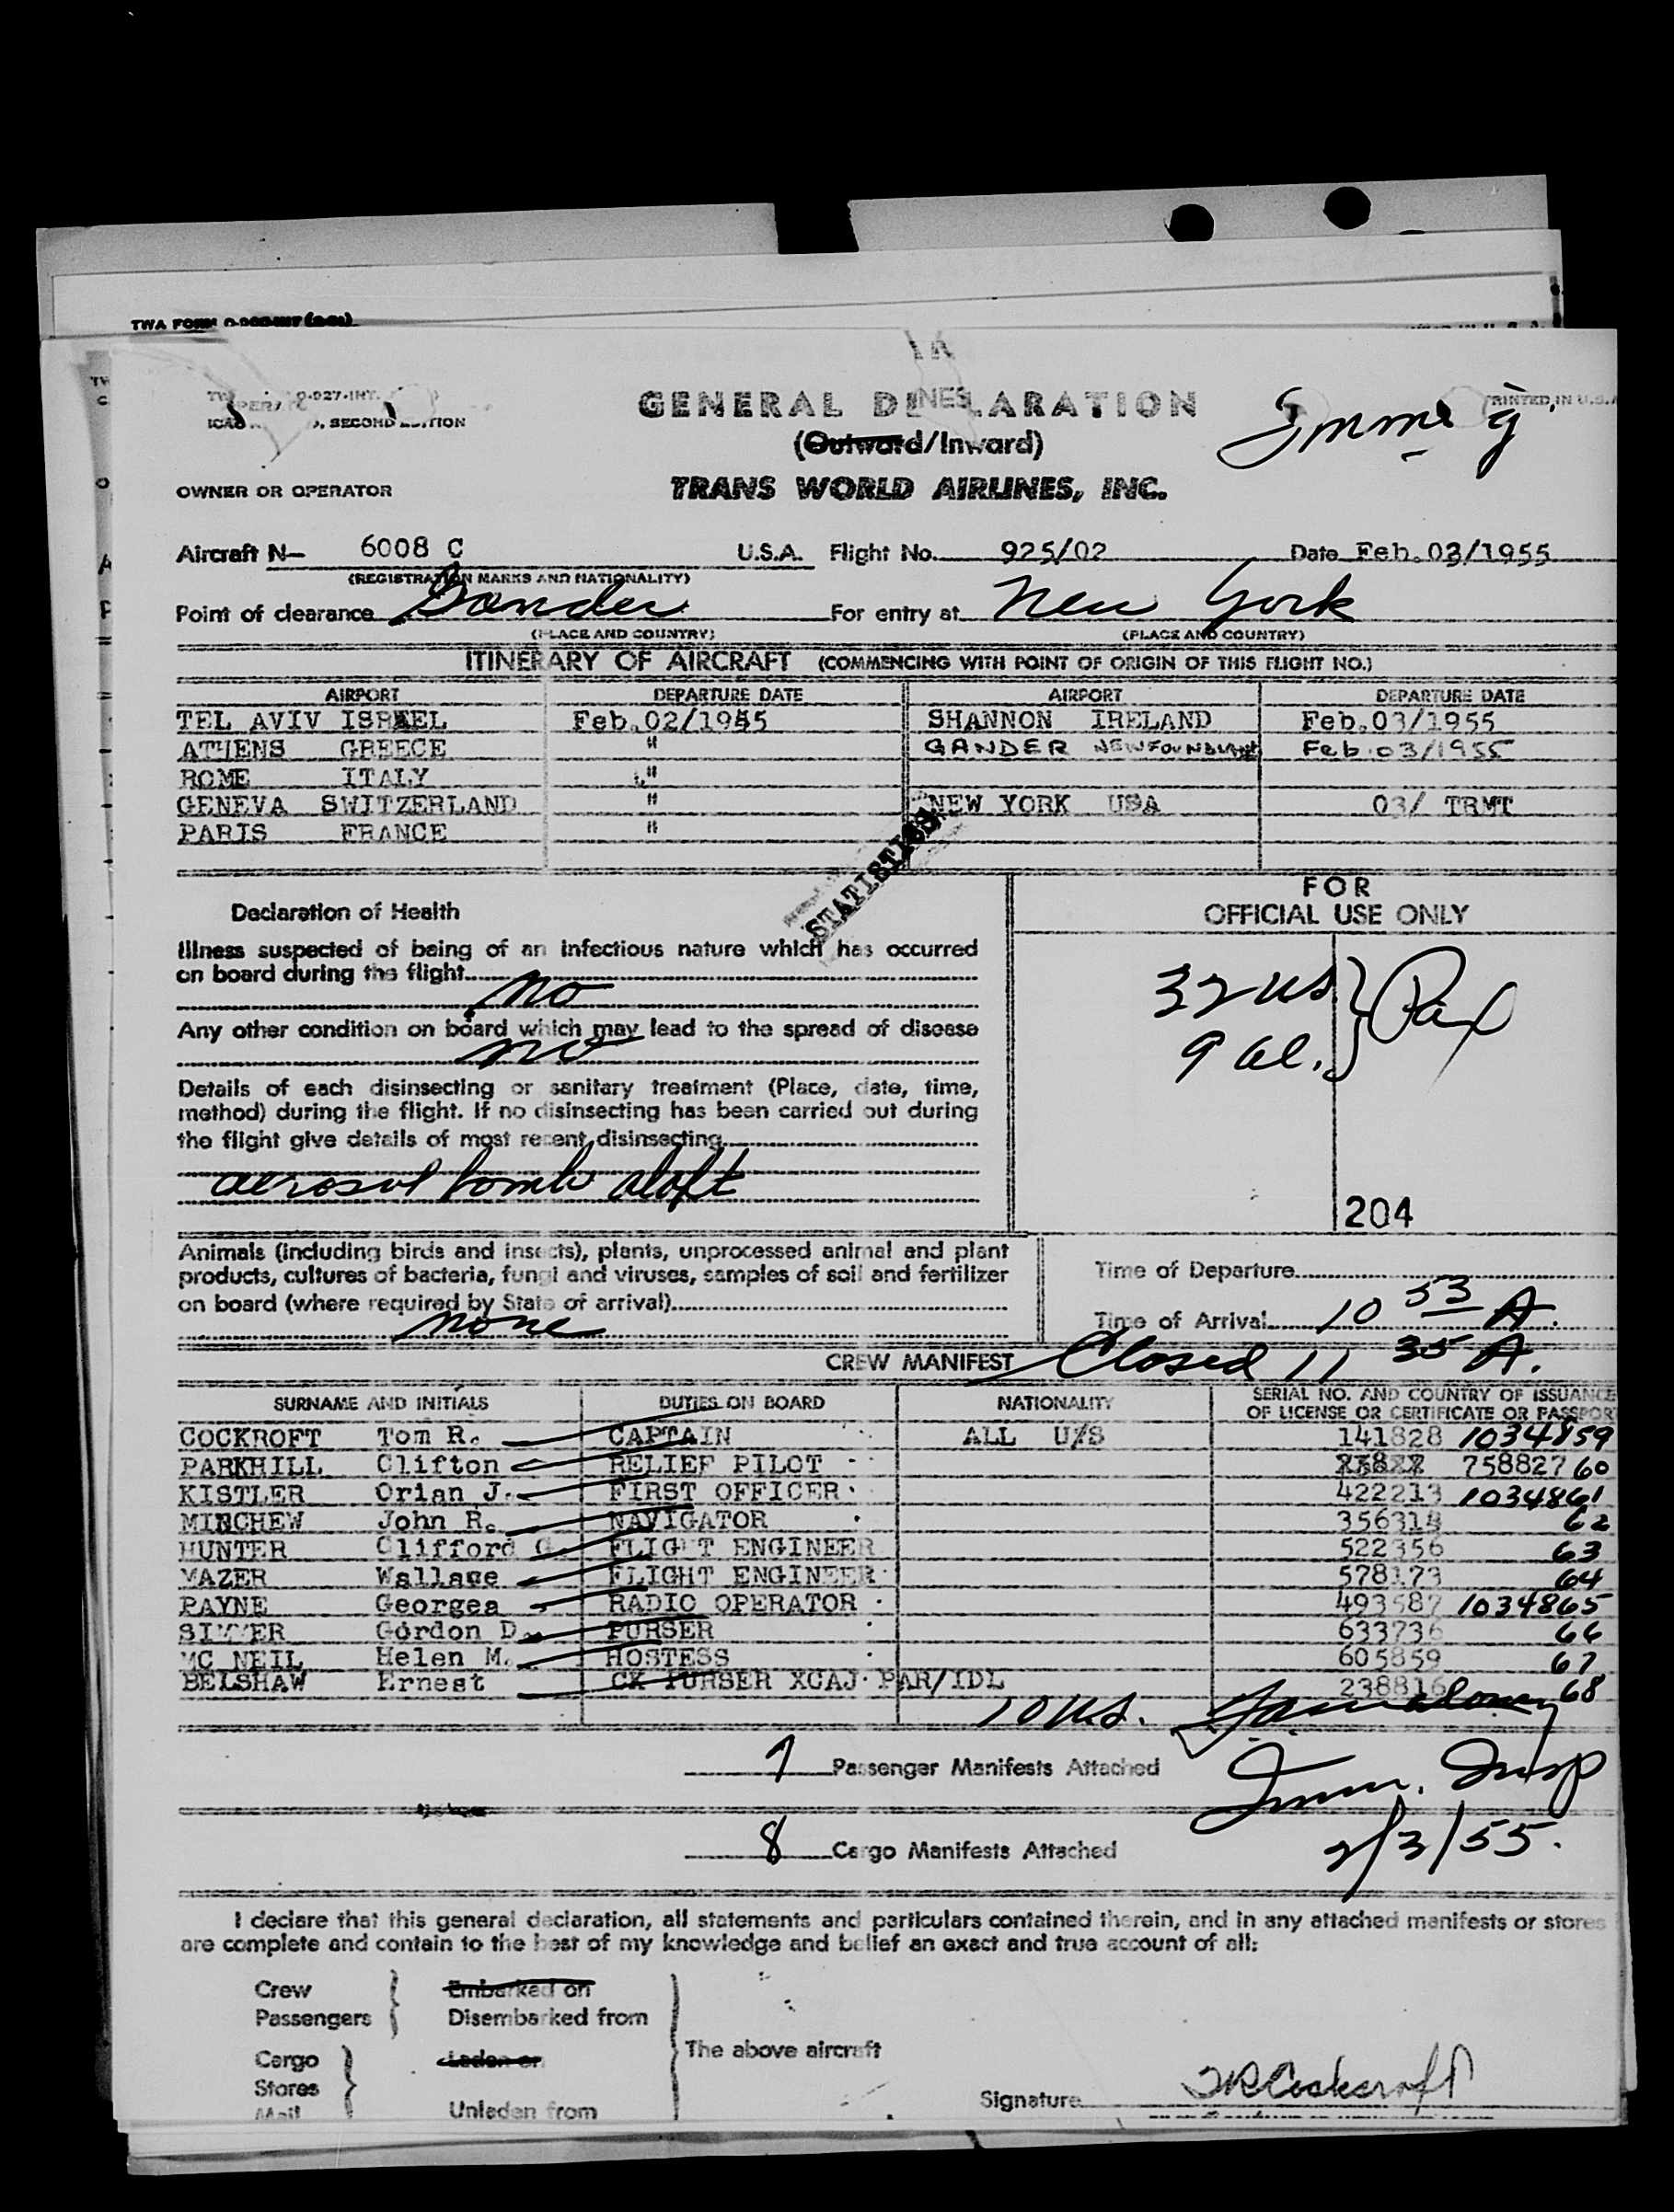 TWA FORM
GENERAL DECLARATION
Immig
PRINTED IN U.S.A
SECOND EDITION
(Outward/Inward)
OWNER OR OPERATOR
TRANS WORLD AIRLINES, INC.
Aircraft N— 6008 C U.S.A. Flight No. 925/02 Date Feb.03/1955
(REGISTRATION MARKS AND NATIONALITY)
Point of clearance Gander For entry at New York
(PLACE AND COUNTRY) (PLACE AND COUNTRY)
ITINERARY OF AIRCRAFT (COMMENCING WITH POINT OF ORIGIN OF THIS FLIGHT NO.)
AIRPORT DEPARTURE DATE AIRPORT DEPARTURE DATE
TEL AVIV ISRAEL Feb.02/1955 SHANNON IRELAND Feb.03/1955
ATHENS GREECE " GANDER NEWFOUNDLAND Feb.03/1955
ROME ITALY "
GENEVA SWITZERLAND " NEW YORK USA 03/ TRMT
PARIS FRANCE "
STATISTICS
FOR
OFFICIAL USE ONLY
Declaration of Health
Illness suspected of being of an infectious nature which has occurred
on board during the flight
no
Any other condition on board which may lead to the spread of disease
no
32 US
9 al. } Pax
Details of each disinsecting or sanitary treatment (Place, date, time,
method) during the flight. If no disinsecting has been carried out during
the flight give details of most recent disinsecting
aerosol bomb aloft
204
Animals (including birds and insects), plants, unprocessed animal and plant
products, cultures of bacteria, fungi and viruses, samples of soil and fertilizer
on board (where required by State of arrival)
none
Time of Departure
Time of Arrival 10 53 A.
CREW MANIFEST Closed 11 35 A.
SURNAME AND INITIALS DUTIES ON BOARD NATIONALITY SERIAL NO. AND COUNTRY OF ISSUANCE
OF LICENSE OR CERTIFICATE OR PASSPORT
COCKROFT Tom R. CAPTAIN ALL U/S 141828 1034859
PARKHILL Clifton RELIEF PILOT 758827 60
KISTLER Orian J. FIRST OFFICER 422213 1034861
MINCHEW John R. NAVIGATOR 356318 62
HUNTER Clifford G. FLIGHT ENGINEER 522356 63
MAZER Wallace FLIGHT ENGINEER 578173 64
PAYNE Georgea RADIO OPERATOR 493587 1034865
Gordon D. PURSER 633736 66
MC NEIL Helen M. HOSTESS 605859 67
BELSHAW Ernest CK PURSER XCAJ PAR/IDL 238816 68
10 U.S.
7 Passenger Manifests Attached
Imm. Insp
8 Cargo Manifests Attached
2/3/55.
I declare that this general declaration, all statements and particulars contained therein, and in any attached manifests or stores
are complete and contain to the best of my knowledge and belief an exact and true account of all:
Crew Embarked on
Passengers Disembarked from
The above aircraft
Cargo Laden on
Stores
Mail Unladen from
Signature TR Cockcroft